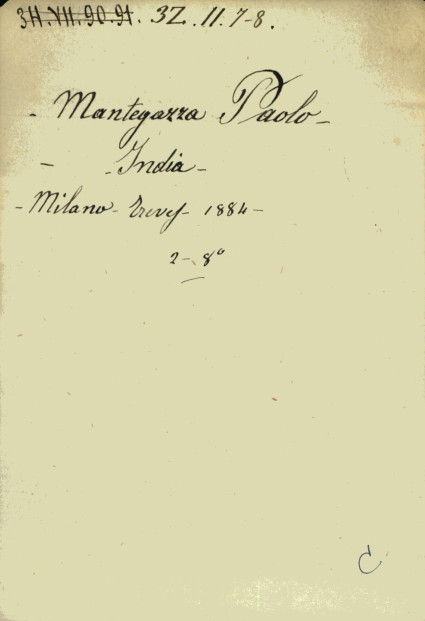 3H.VII.90.91. 3Z.II.7-8.
- Mantegazza Paolo -
- - India -
- Milano - Treves - 1884 -
2 - 8°
C